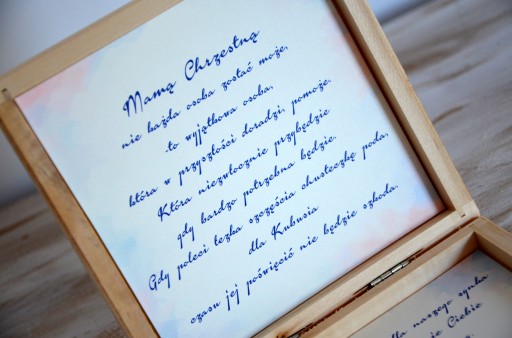 Mamą Chrzestną
nie każda osoba zostać może,
to wyjątkowa osoba,
która w przyszłości doradzi, pomoże.
Która niezwłocznie przybędzie
gdy bardzo potrzebna będzie.
Gdy poleci łezka szczęścia chusteczkę poda,
dla Kubusia
czasu jej poświęcić nie będzie szkoda.
dla naszego synka
Ciebie